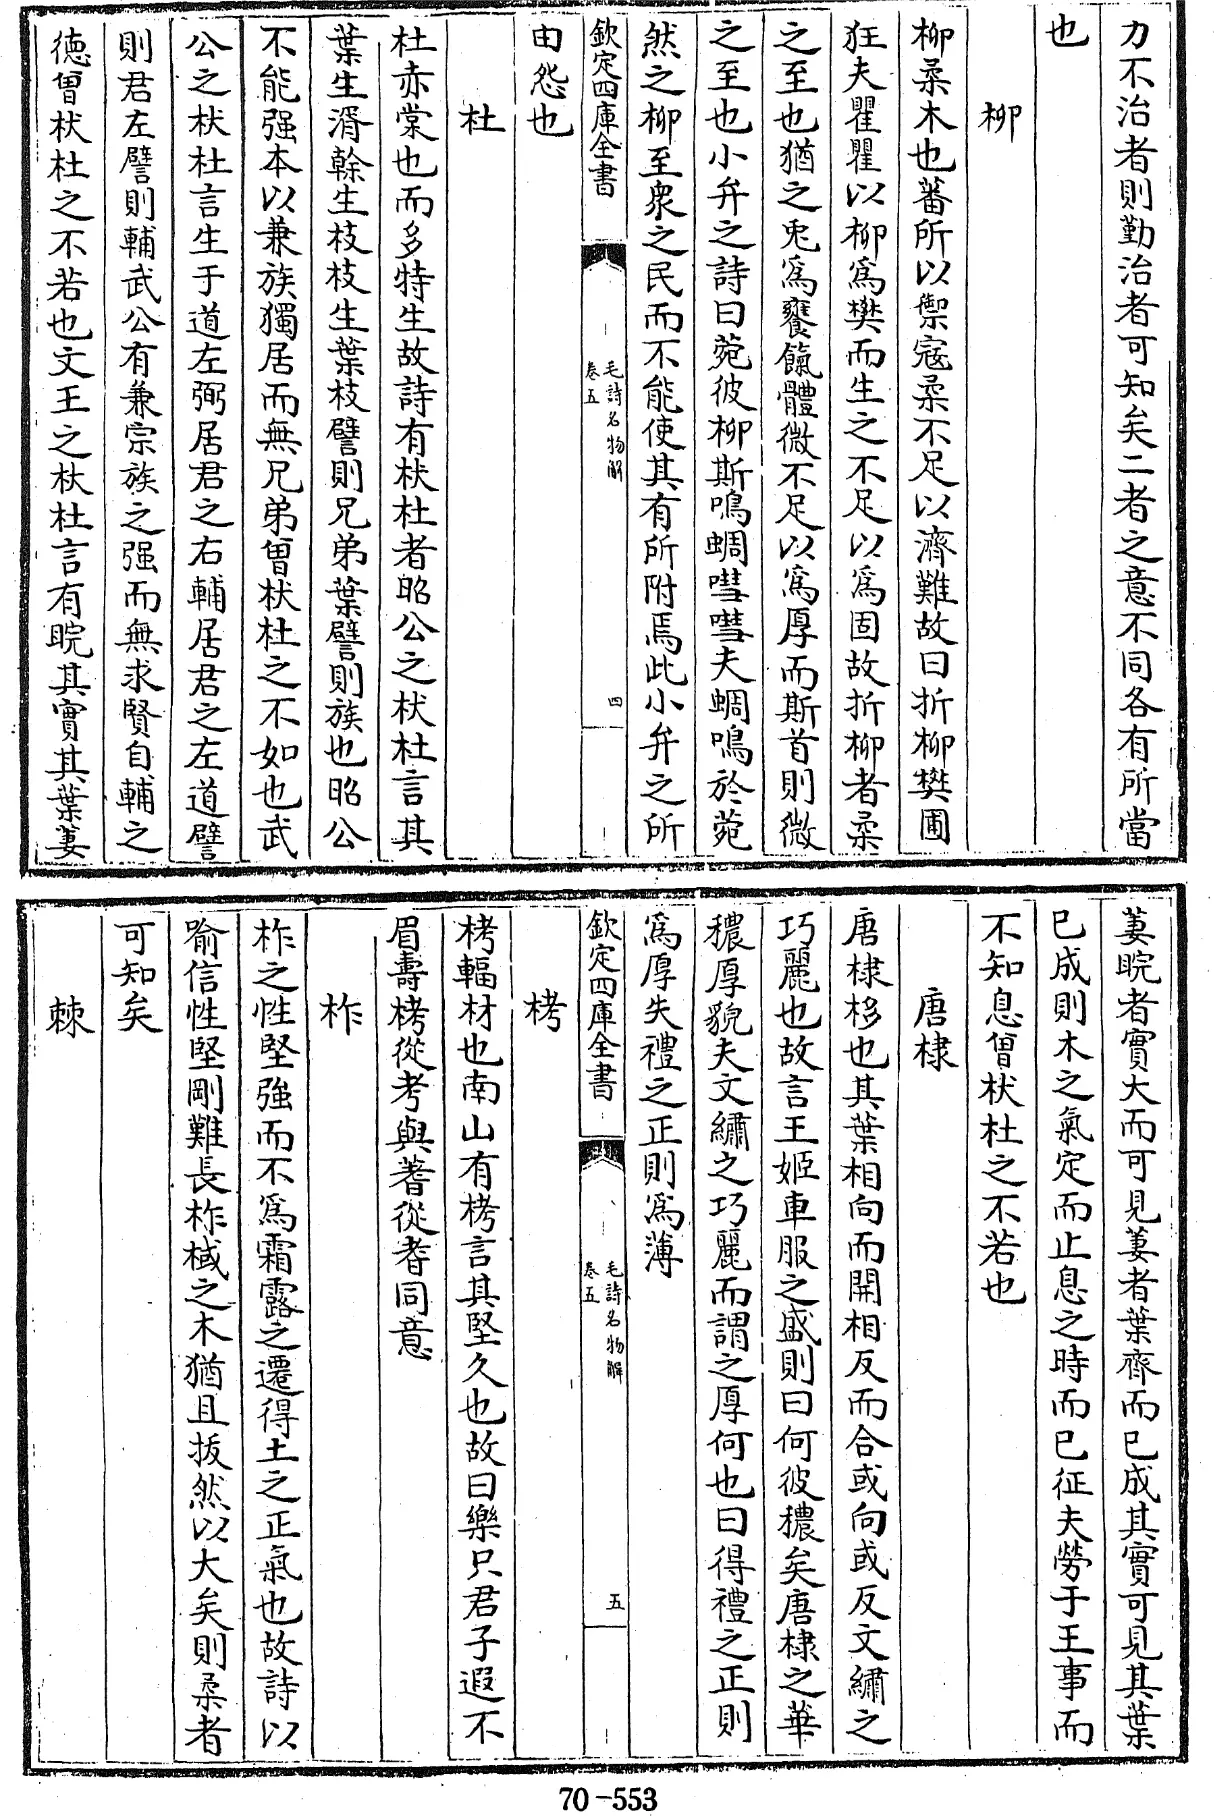 力不治者則勤治者可知矣二者之意不同各有所當
也
柳
柳柔木也蕃所以禦寇柔不足以濟難故曰折柳樊圃
狂夫瞿瞿以柳為樊而生之不足以為固故折柳者柔
之至也猶之兎為饔餼體微不足以為厚而斯首則微
之至也小弁之詩曰菀彼柳斯鳴蜩嘒嘒夫蜩鳴於菀
然之柳至衆之民而不能使其有所附焉此小弁之所
欽定四庫全書
毛詩名物解
卷五
四
由怨也
杜
杜赤棠也而多特生故詩有杕杜者昭公之杕杜言其
葉生湑榦生枝枝生葉枝譬則兄弟葉譬則族也昭公
不能强本以兼族獨居而無兄弟曾杕杜之不如也武
公之杕杜言生于道左弼居君之右輔居君之左道譬
則君左譬則輔武公有兼宗族之强而無求賢自輔之
德曾杕杜之不若也文王之杕杜言有睆其實其葉萋
萋睆者實大而可見萋者葉齊而已成其實可見其葉
已成則木之氣定而止息之時而已征夫勞于王事而
不知息曾杕杜之不若也
唐棣
唐棣栘也其葉相向而開相反而合或向或反文繡之
巧麗也故言王姬車服之盛則曰何彼穠矣唐棣之華
穠厚貌夫文繡之巧麗而謂之厚何也曰得禮之正則
為厚失禮之正則為薄
欽定四庫全書
毛詩名物解
卷五
五
栲
栲輻材也南山有栲言其堅久也故曰樂只君子遐不
眉壽栲從考與蓍從耆同意
柞
柞之性堅強而不為霜露之遷得土之正氣也故詩以
喻信性堅剛難長柞棫之木猶且拔然以大矣則柔者
可知矣
棘
70-553